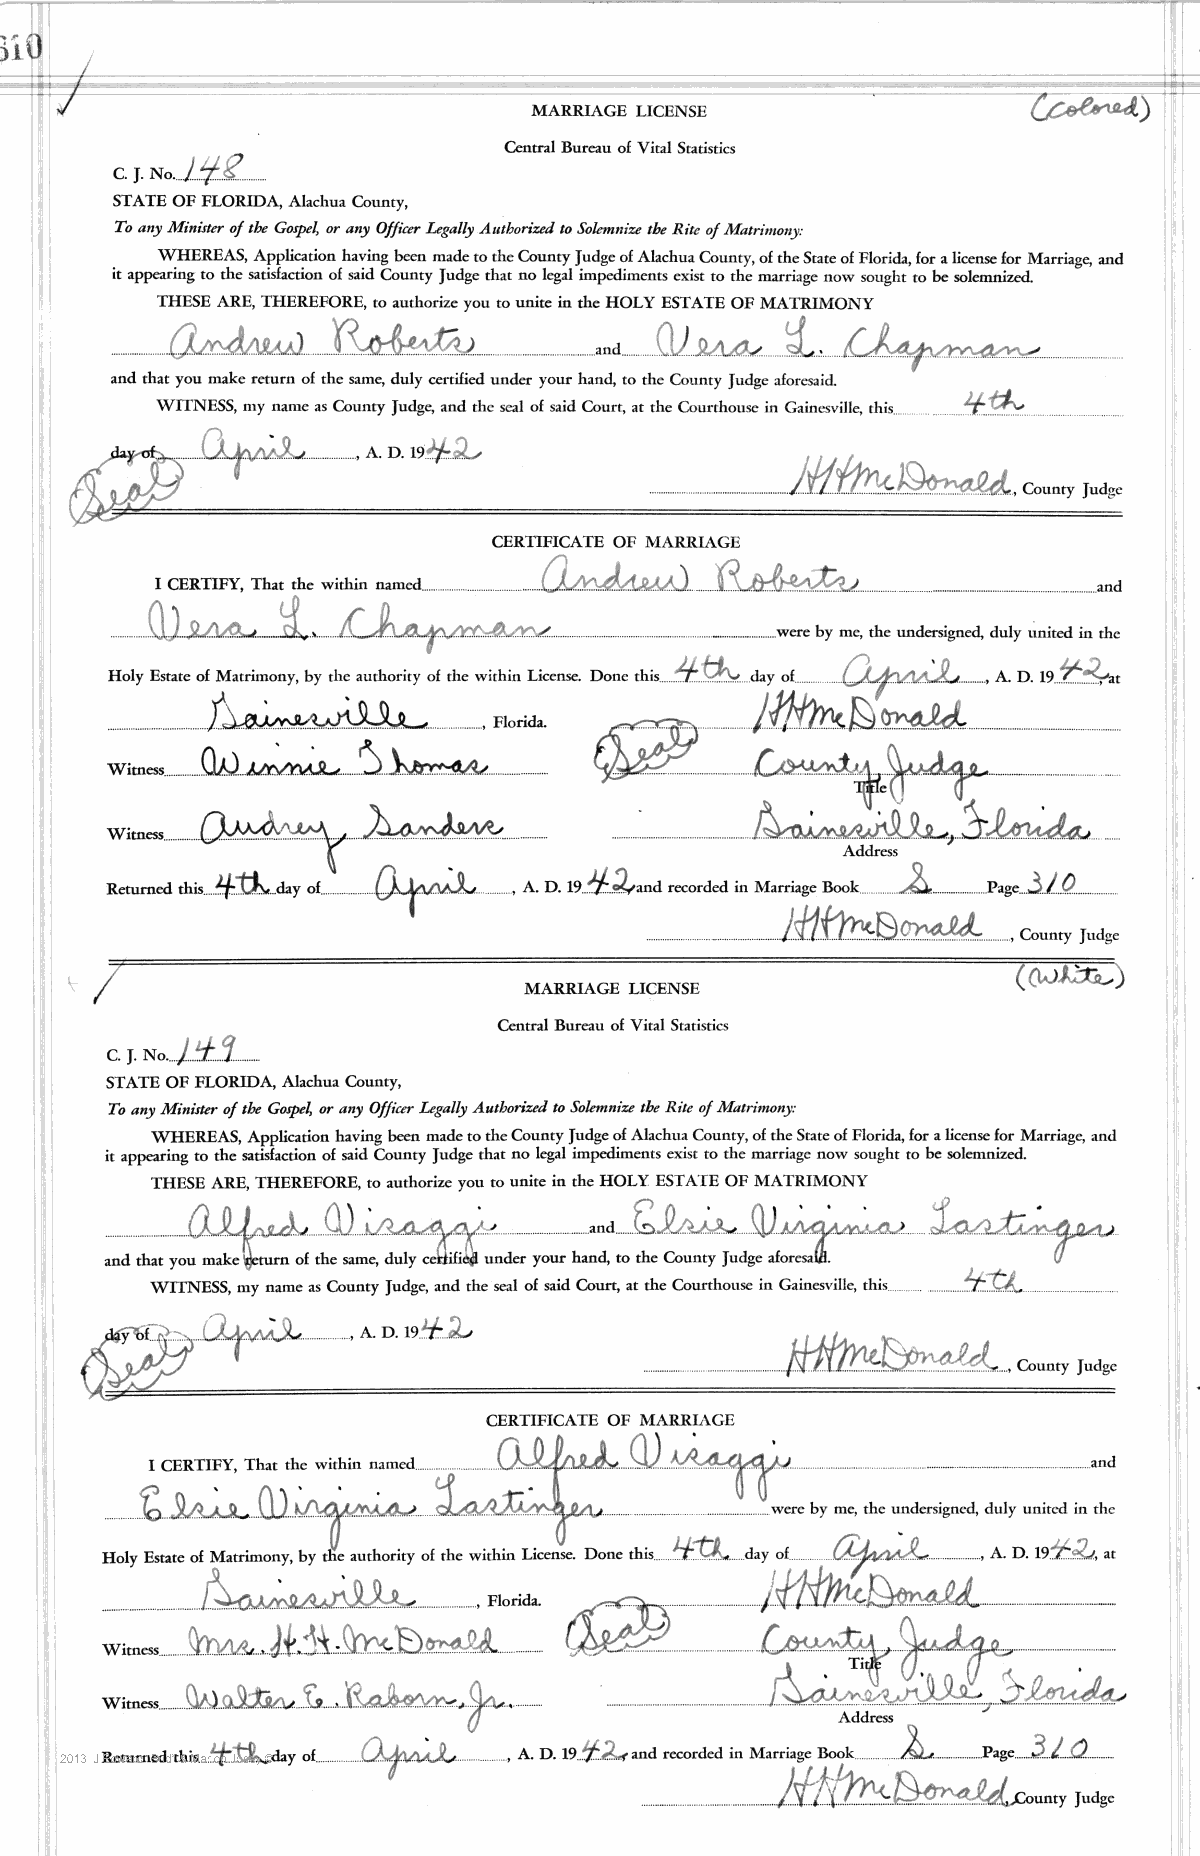 310
MARRIAGE LICENSE (Colored)
Central Bureau of Vital Statistics
C. J. No. 148
STATE OF FLORIDA, Alachua County,
To any Minister of the Gospel, or any Officer Legally Authorized to Solemnize the Rite of Matrimony:
WHEREAS, Application having been made to the County Judge of Alachua County, of the State of Florida, for a license for Marriage, and
it appearing to the satisfaction of said County Judge that no legal impediments exist to the marriage now sought to be solemnized.
THESE ARE, THEREFORE, to authorize you to unite in the HOLY ESTATE OF MATRIMONY
Andrew Roberts and Vera L. Chapman
and that you make return of the same, duly certified under your hand, to the County Judge aforesaid.
WITNESS, my name as County Judge, and the seal of said Court, at the Courthouse in Gainesville, this 4th
day of April, A. D. 1942
(Seal) HHMcDonald, County Judge
CERTIFICATE OF MARRIAGE
I CERTIFY, That the within named Andrew Roberts and
Vera L. Chapman were by me, the undersigned, duly united in the
Holy Estate of Matrimony, by the authority of the within License. Done this 4th day of April, A. D. 1942, at
Gainesville, Florida. HHMcDonald
Witness Winnie Thomas (Seal) County Judge
Title
Witness Audrey Sanders Gainesville, Florida
Address
Returned this 4th day of April, A. D. 1942 and recorded in Marriage Book S Page 310
HHMcDonald, County Judge
(White)
MARRIAGE LICENSE
Central Bureau of Vital Statistics
C. J. No. 149
STATE OF FLORIDA, Alachua County,
To any Minister of the Gospel, or any Officer Legally Authorized to Solemnize the Rite of Matrimony:
WHEREAS, Application having been made to the County Judge of Alachua County, of the State of Florida, for a license for Marriage, and
it appearing to the satisfaction of said County Judge that no legal impediments exist to the marriage now sought to be solemnized.
THESE ARE, THEREFORE, to authorize you to unite in the HOLY ESTATE OF MATRIMONY
Alfred Visaggi and Elsie Virginia Lastinger
and that you make return of the same, duly certified under your hand, to the County Judge aforesaid.
WITNESS, my name as County Judge, and the seal of said Court, at the Courthouse in Gainesville, this 4th
day of April, A. D. 1942
(Seal) HHMcDonald, County Judge
CERTIFICATE OF MARRIAGE
I CERTIFY, That the within named Alfred Visaggi and
Elsie Virginia Lastinger were by me, the undersigned, duly united in the
Holy Estate of Matrimony, by the authority of the within License. Done this 4th day of April, A. D. 1942, at
Gainesville, Florida. HHMcDonald
Witness Mrs. H. H. McDonald (Seal) County Judge
Title
Witness Walter E. Raborn, Jr. Gainesville, Florida
Address
2013
Returned this 4th day of April, A. D. 1942, and recorded in Marriage Book S Page 310
HHMcDonald, County Judge